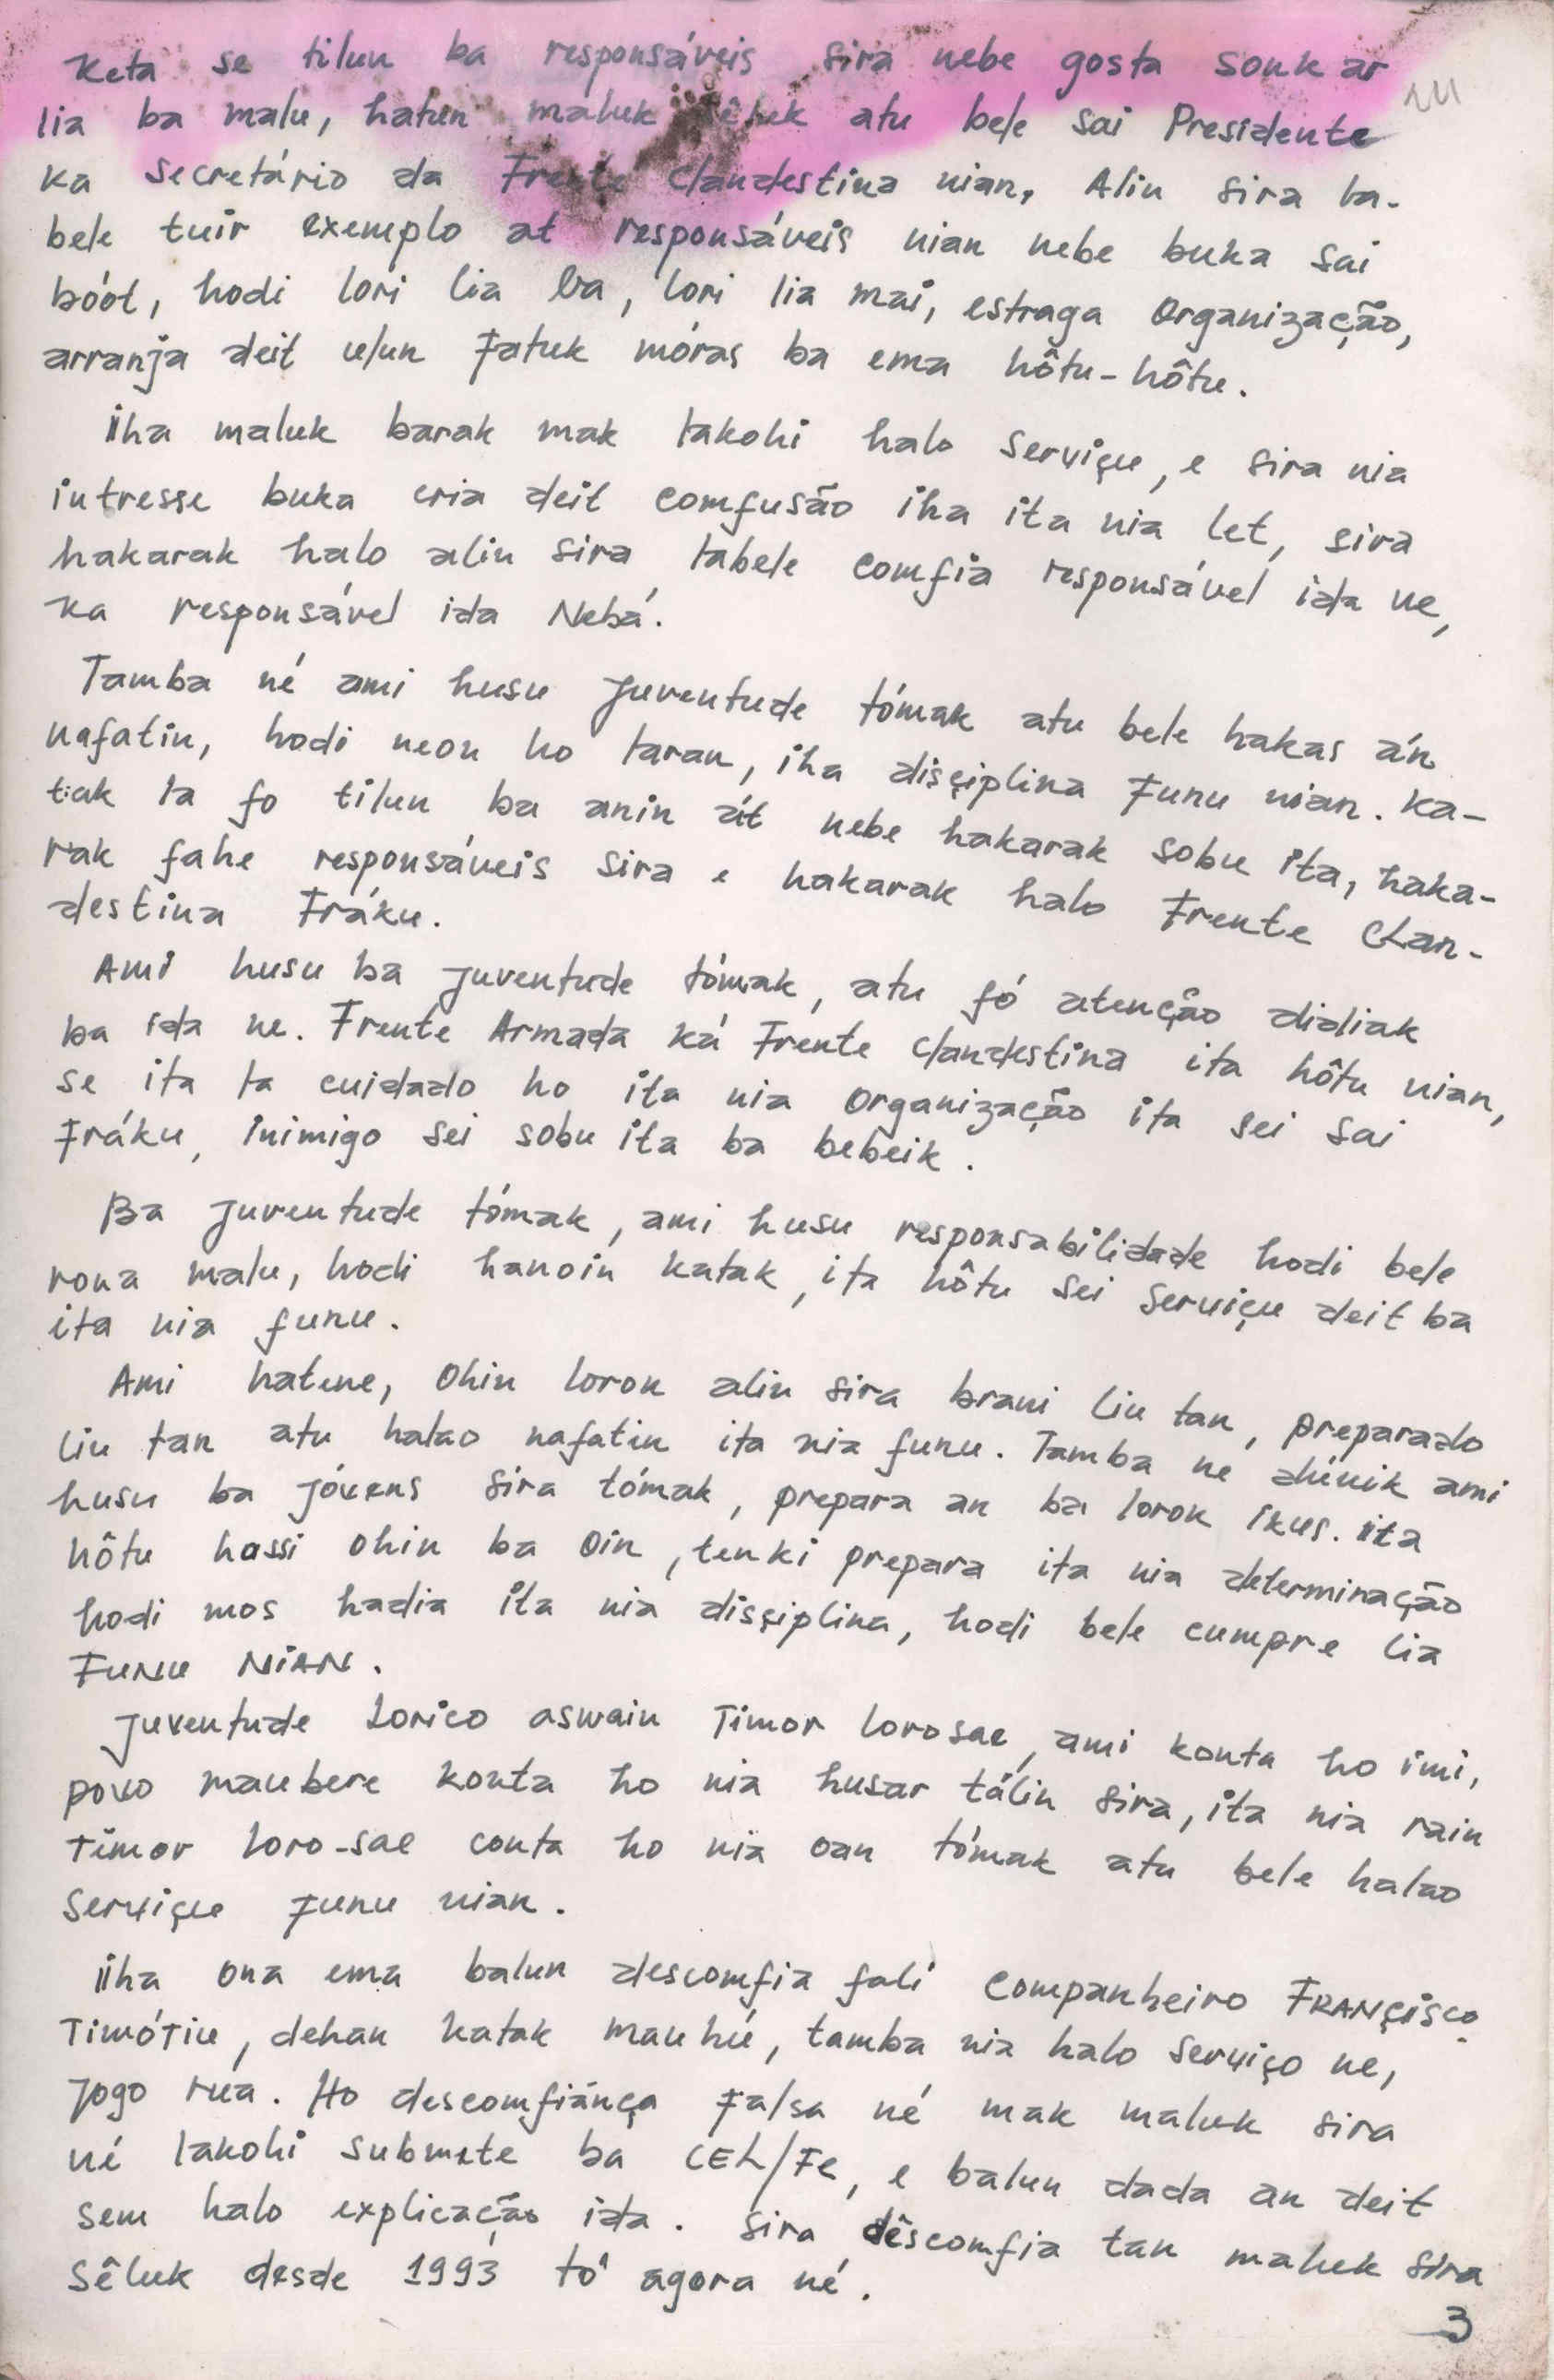 Keta se tilun ba responsáveis sira nebe gosta sonkar
lia ba malu, hatun maluk sêluk atu bele sai Presidente
ka secretário da Frente Clandestina nian, Alin sira ta-
bele tuir exemplo at responsáveis nian nebe buka sai
bóot, hodi lori lia ba, lori lia mai, estraga Organização,
arranja deit ulun Fatuk móras ba ema hôtu-hôtu.
Iha maluk barak mak takohi halo serviçu, e sira nia
intresse buka cria deit comfusão iha ita nia let, sira
hakarak halo alin sira, tabele comfia responsável ida ne,
ka responsável ida Nebá.
Tamba né ami husu juventude tómak atu bele hakas án
nafatin, hodi neon ho laran, iha disçiplina Funu nian. Ka-
tak ta fo tilun ba anin át nebe hakarak sobu ita, haka-
rak fahe responsáveis sira e hakarak halo Frente Clan-
destina Fráku.
Ami husu ba juventude tómak, atu fó atenção didiak
ba ida ne. Frente Armada ká Frente Clandestina ita hôtu nian,
se ita ta cuidado ho ita nia Organização ita sei sai
Fráku, inimigo sei sobu ita ba bebeik.
Ba juventude tómak, ami husu responsabilidade hodi bele
rona malu, hodi hanoin katak, ita hôtu sei serviçu deit ba
ita nia funu.
Ami hatene, Ohin loron alin sira brani liu tan, preparado
liu tan atu halao nafatin ita nia funu. Tamba ne dúuik ami
husu ba jóvens sira tómak, prepara an ba loron ikus. ita
hôtu hassi ohin ba oin, tenki prepara ita nia determinação
hodi mos hadia ita nia disçiplina, hodi bele cumpre lia
FUNU NIAN.
Juventude Lorico aswain Timor lorosae, ami konta ho imi,
povo maubere konta ho nia husar tálin sira, ita nia rain
Timor loro-sae conta ho nia oan tómak atu bele halao
Serviçu Funu nian.
Iha ona ema balun descomfia fali Companheiro FRANÇISCO
TIMÓTIU, dehan katak mauhú, tamba nia halo serviço ne,
Jogo rua. Ho descomfiánça Falsa né mak maluk sira
né lakohi submete ba CEL/FC, e balun dada an deit
sem halo explicação ida. Sira dêscomfia tan maluk sira
Sêluk desde 1993 tô agora né.
3